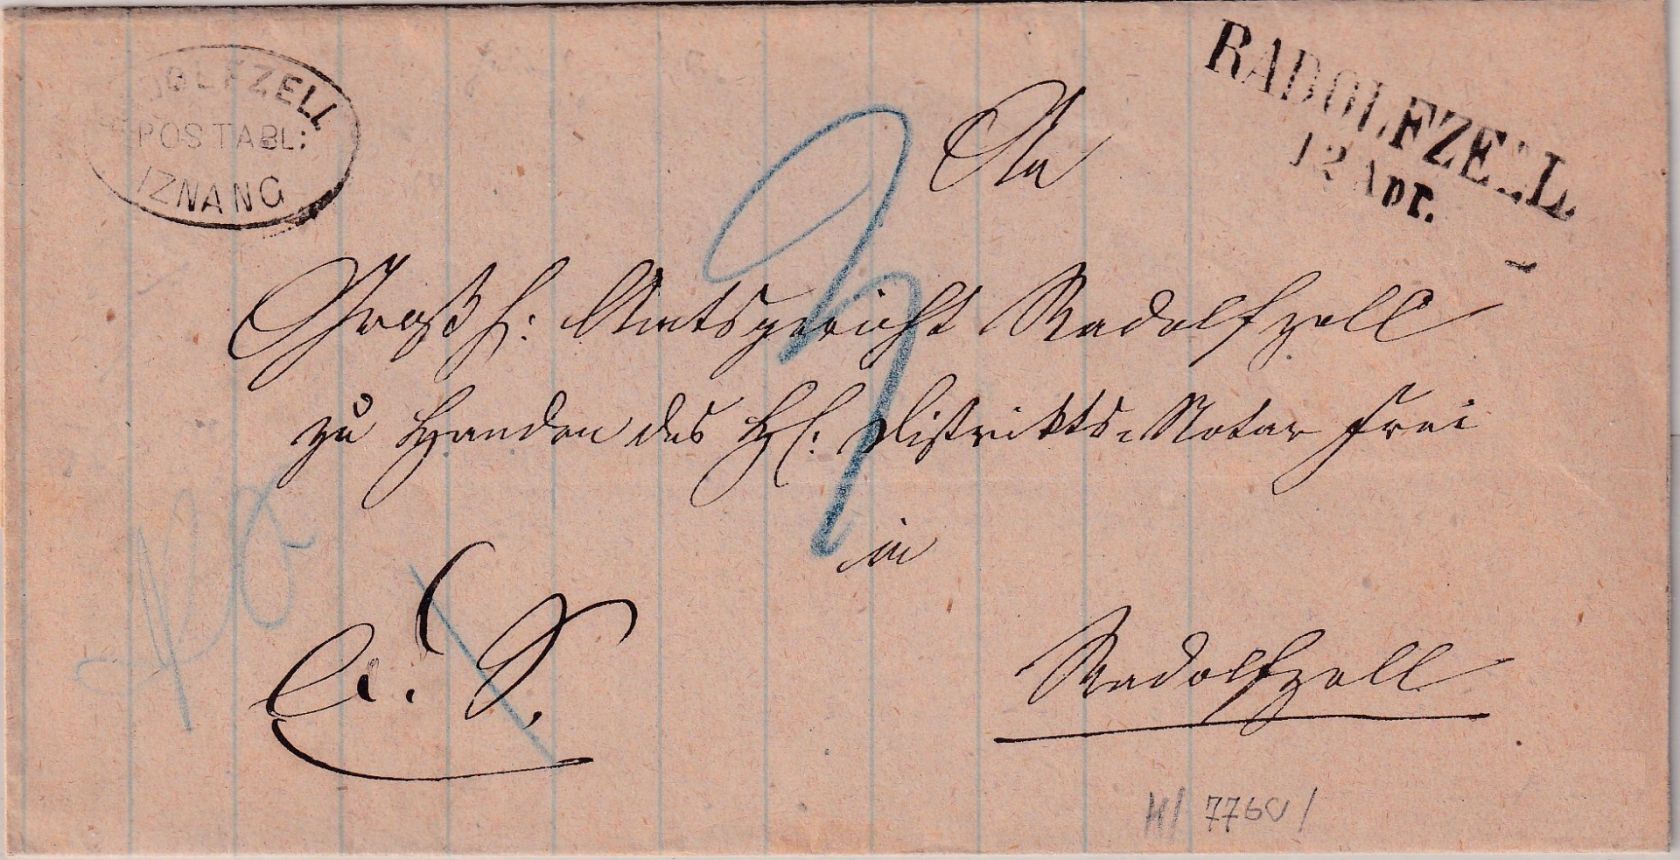 RADOLFZELL
POSTABL:
IZNANG
RADOLFZELL
12 Apr.
An
Großh: Amtsgericht Radolfzell
zu Handen des H: Distrikts=Notar Frei
in
Radolfzell
3
7760/